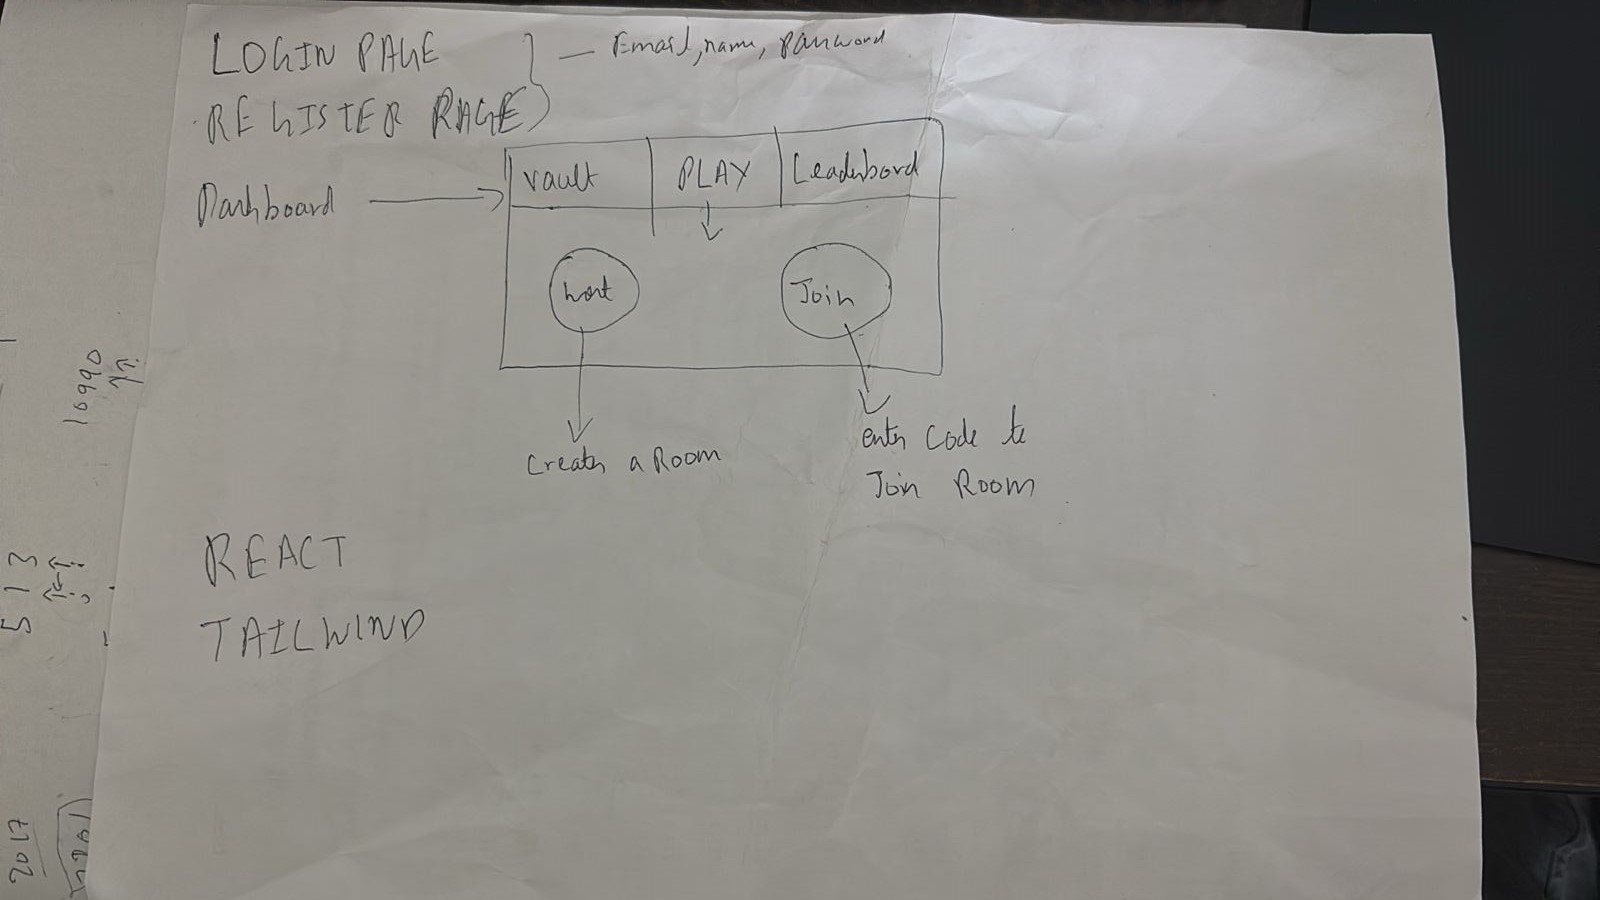 LOGIN PAGE
REGISTER PAGE
Email, name, password
Dashboard
vault
PLAY
Leaderbord
host
Join
Create a Room
enter code to
Join Room
REACT
TAILWIND
10990
5 1 3
2017